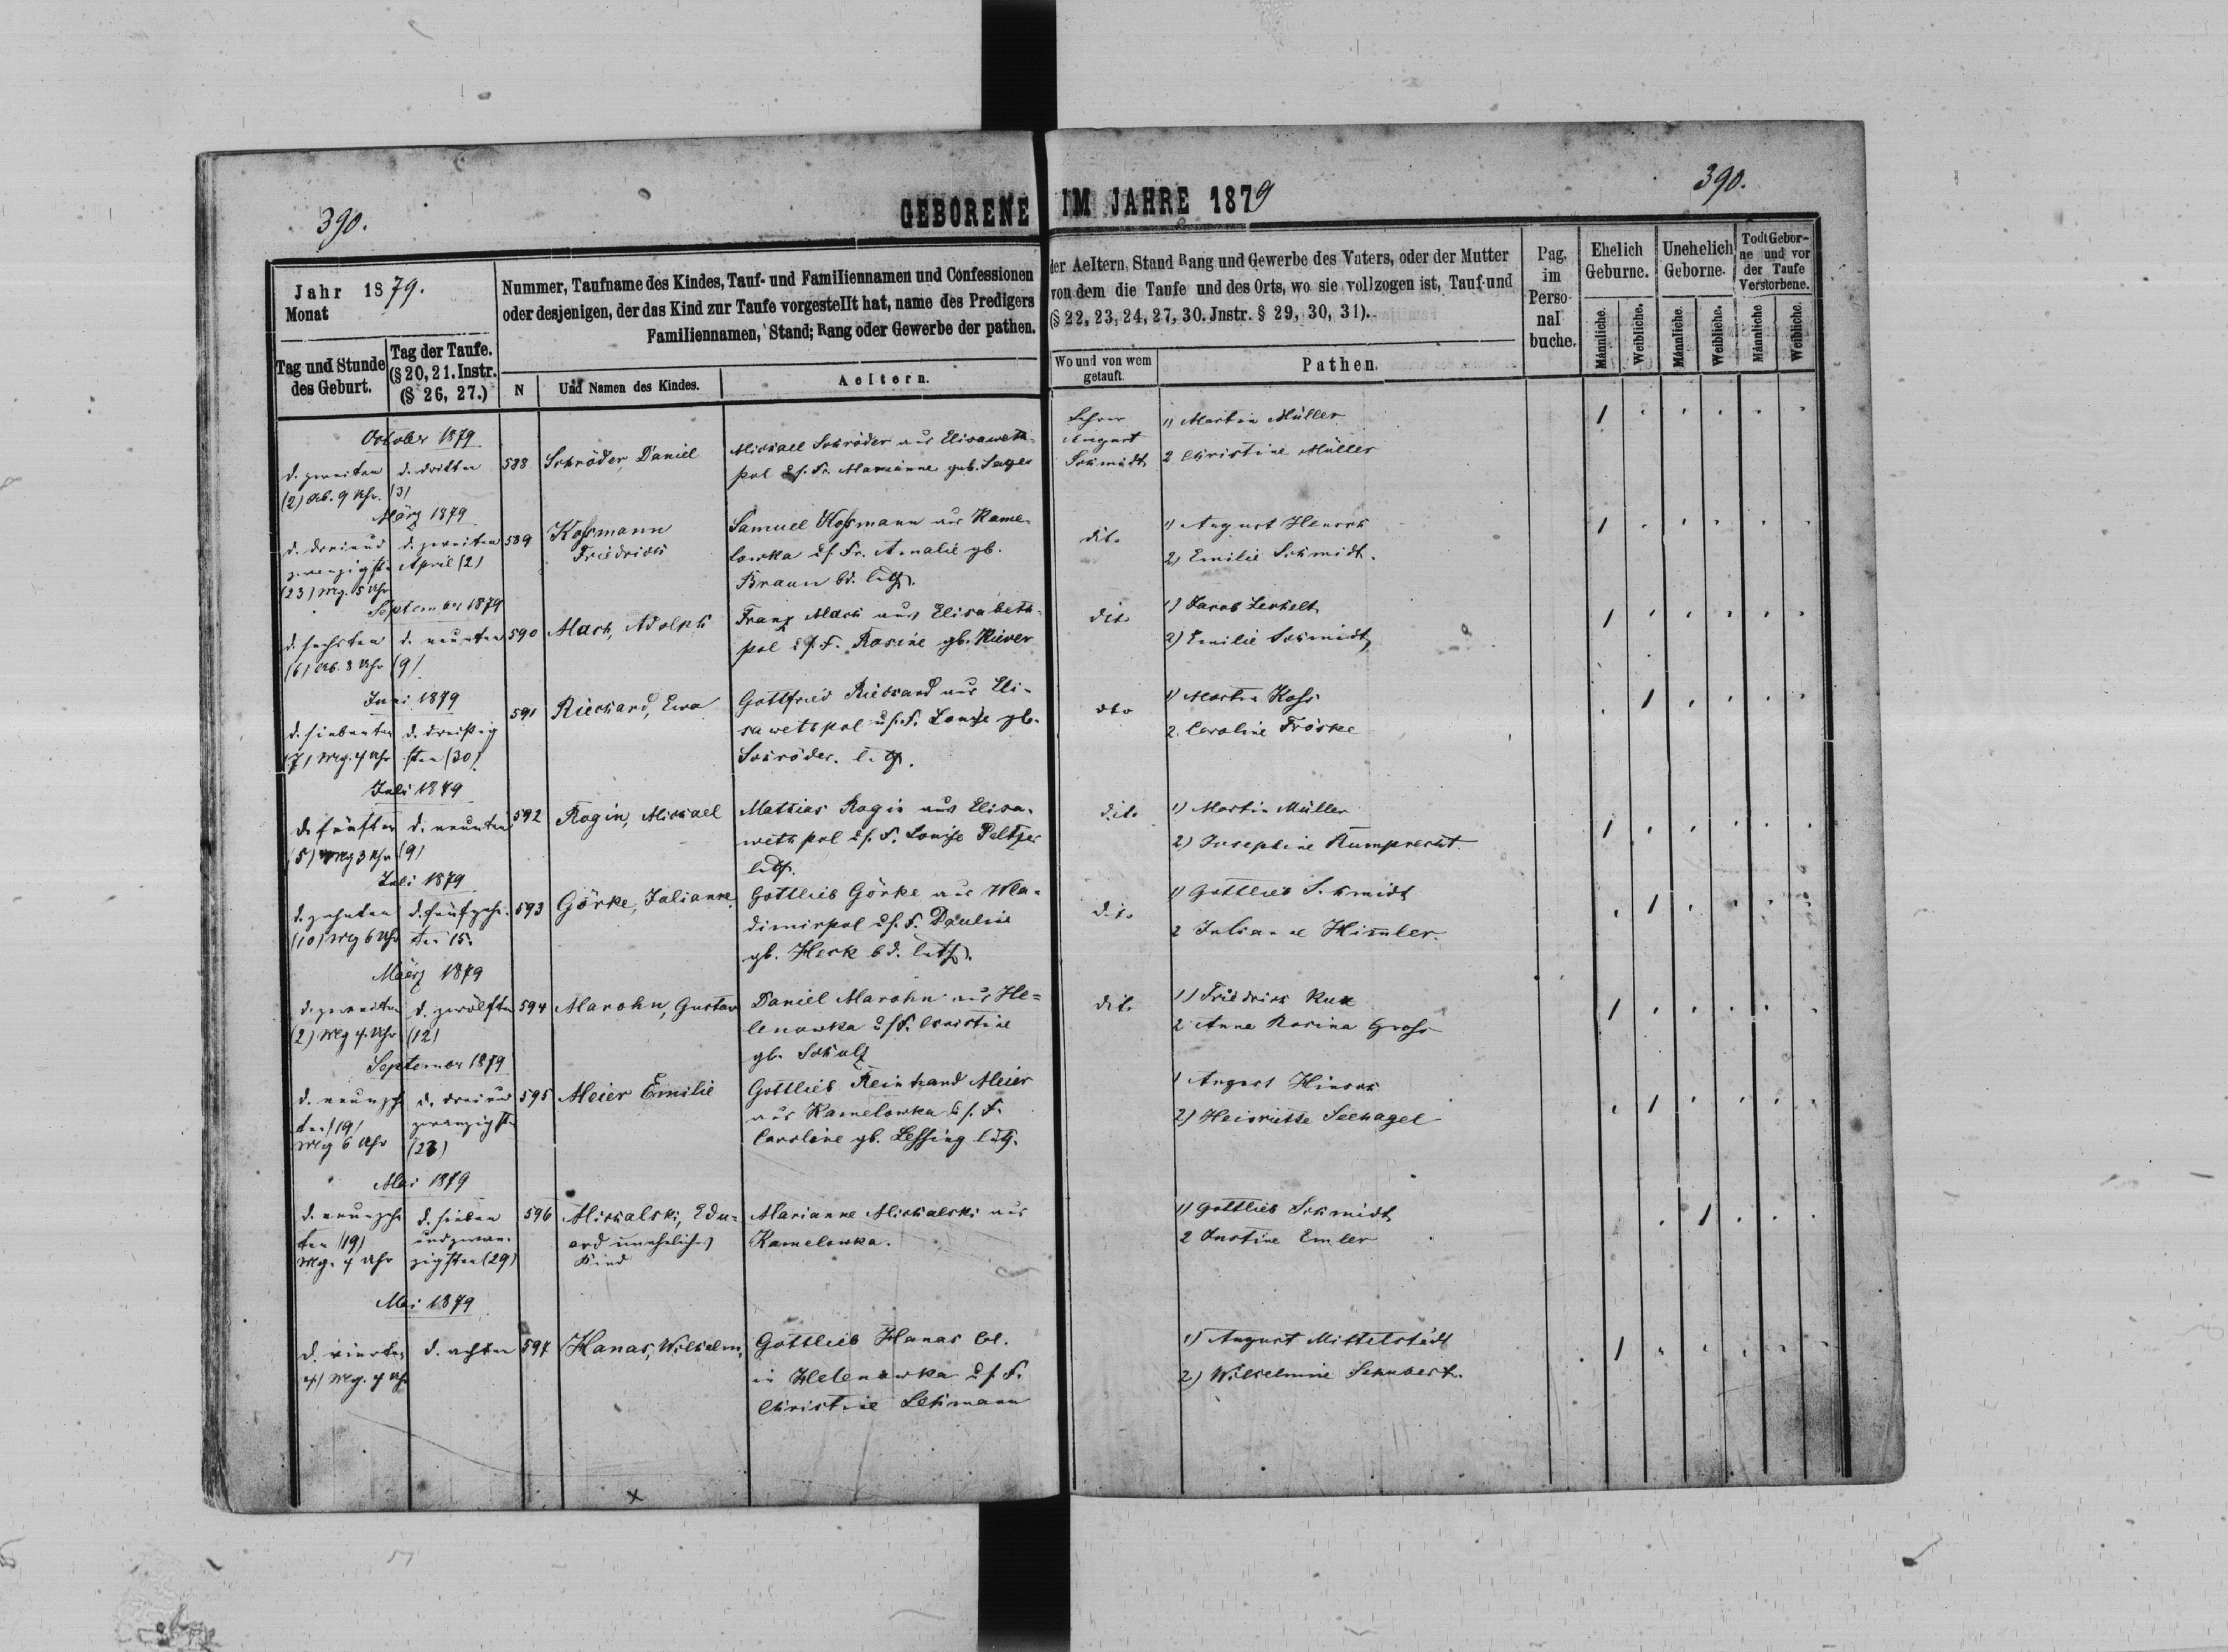 390.
GEBORENE IM JAHRE 1879
390.
Jahr 1879.
Monat
Tag und Stunde des Geburt.
Tag der Taufe. (§ 20, 21. Instr. (§ 26, 27.)
Nummer, Taufname des Kindes, Tauf- und Familiennamen und Confessionen
oder desjenigen, der das Kind zur Taufe vorgestellt hat, name des Predigers
Familiennamen, Stand; Rang oder Gewerbe der pathen.
N
Und Namen des Kindes.
Aeltern.
der Aeltern, Stand Rang und Gewerbe des Vaters, oder der Mutter
von dem die Taufe und des Orts, wo sie vollzogen ist, Tauf-und
(§ 22, 23, 24, 27, 30. Jnstr. § 29, 30, 31).
Wo und von wem getauft.
Pathen.
Pag. im Perso- nal buche.
Ehelich Geburne.
Unehelich Geborne.
Todt Gebor- ne und vor der Taufe Verstorbene.
Männliche.
Weibliche.
Männliche.
Weibliche.
Männliche
Weibliche.
October 1879
d. zweiten
(2) Ab. 9 Uhr.
d. dritten
(3)
588
Schröder, Daniel
Michael Schröder aus Elisaweth-
pol u. s. Fr. Marianne geb.
Lehrer
August
Schmidt
1) Martin Müller
2 Christine Müller
März 1879
d. dreiund
zwanzigst.
(23) Mg. 5 Uhr
d. zweiten
April (2)
589
Kossmann
Friedrich
Samuel Kossmann aus Kame-
lowka u. s. Fr. Amalie gb.
Braun bd. luth.
dito
1) August Hensch
2) Emilie Schmidt.
September 1879
d. sechsten
(6) Ab. 8 Uhr
d. neunten
(9)
590
Mach, Adolph
Franz Mach aus Elisabeth-
pol u. s. F. Rosine gb. Riever
dito
1) Jacob Leschelt
2) Emilie Schmidt
Juni 1879
d. siebenten
(7) Mg. 4 Uhr
d. dreißig
sten (30)
591
Riechard, Ewa
Gottfried Riechard aus Eli-
sawethpol u. s. F. Louise gb.
Schröder. l.
dto
1) Martin Koss
2. Caroline Fröske
Juli 1879
d. fünften
(5) Mg 3 Uhr
d. neunten
(9)
592
Rogin, Michael
Mathias Rogin aus Elisa-
wethpol u. s. F. Louise Peltzer
luth.
dito
1) Martin Müller
2) Josephine Rumprecht
Juli 1879
d. zehnten
(10) Mg 6 Uhr
d. fünfzehn-
ten 15.
593
Görke, Julianne.
Gottlieb Görke aus Wla-
dimirpol u. s. F. Pauline
gb. Herk bd. luth.
dito
1) Gottlieb Schmidt
2 Julianne Himler.
Määrz 1879
d. zweiten
(2) Mg 4 Uhr
d. zwölften
(12)
594
Marohn, Gustav
Daniel Marohn aus He-
lenowka u. s. F. Christine
gb. Schulz
dito
1) Friedrich Rux
2 Anna Rosina Gross
September 1879
d. neunzeh
ten (19)
Mg 6 Uhr
d. dreiund
zwanzigst.
(23)
595
Meier Emilie
Gottlieb Reinhard Meier
aus Kamelowka u. s. F.
Caroline gb. Lessing luth.
1 August Hinsch
2) Heinriette Seehagel
Mai 1879
d. neunzehn
ten (19)
Mg. 4 Uhr
d. sieben
undzwan-
zigsten (29)
596
Michalski, Edu-
ard uneheliches
Kind
Marianne Michalski aus
Kamelowka.
1) Gottlieb Schmidt
2 Justine Emler
Mai 1879
d. vierten
4) Mg. 4 Uh
d. achten
597
Hanas, Wilhelm,
Gottlieb Hanas
in Helenowka u. s. F.
Christine Lehmann
1) August Mittelstädt
2) Wilhelmine Schubert.